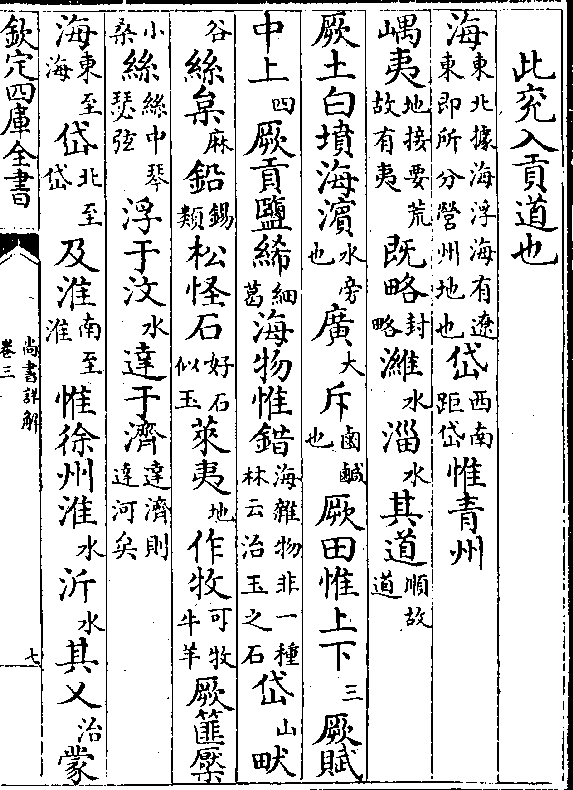 此兖入貢道也
海東北據海浮海有遼東即所分營州地也岱西南距岱惟青州
嵎夷地接要荒故有夷既略封略濰水淄水其道順故道
厥土白墳海濱水旁也廣大斥鹵鹹也厥田惟上下三厥賦
中上四厥貢鹽絺細葛海物惟錯海雜物非一種林云治玉之石岱山畎
谷絲枲麻鉛錫類松怪石好石似玉萊夷地作牧可牧牛羊厥篚檿
小桑絲絲中琴瑟弦浮于汶水達于濟達濟則達河矣
海東至海岱北至岱及淮南至淮惟徐州淮水沂水其乂治蒙
欽定四庫全書
尚書詳解
卷三
七